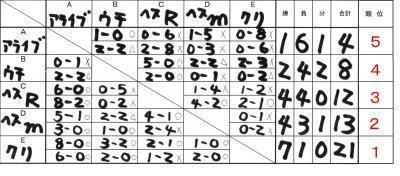 A B C D E 勝 負 分 合計 順位
アライブ ウチ ヘスR ヘスm クリ
A 1-0○ 0-6× 1-5× 0-8×
アライブ 2-2△ 2-8× 0-3× 0-6× 1 6 1 4 5
B 0-1× 5-0○ 2-2△ 2-3×
ウチ 2-2△ 2-0○ 0-1× 0-2× 2 4 2 8 4
C 6-0○ 0-5× 1-4× 1-2×
ヘスR 8-2○ 0-2× 4-2○ 2-1○ 4 4 0 12 3
D 5-1○ 2-2△ 4-1○ 0-1×
ヘスm 3-0○ 1-0○ 2-4× 0-2× 4 3 1 13 2
E 8-0○ 3-2○ 2-1○ 1-0○
クリ 6-0○ 2-0○ 1-2× 2-0○ 7 1 0 21 1